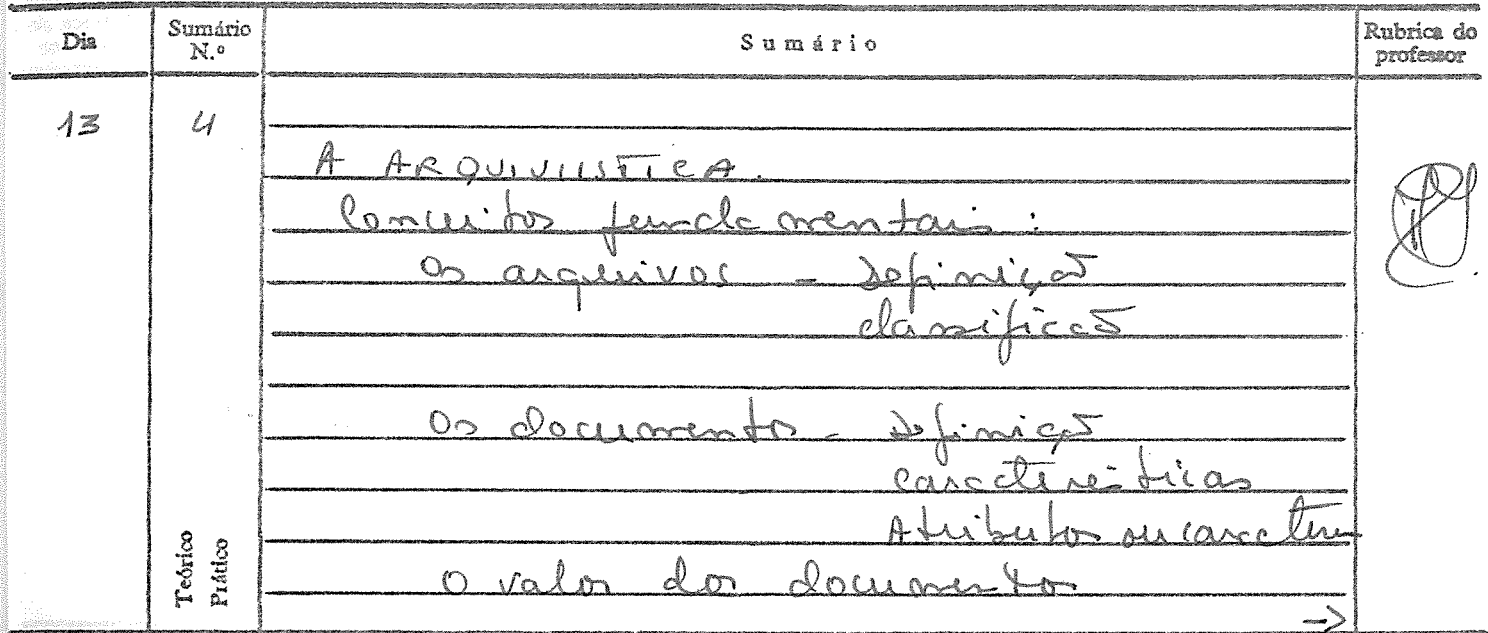 Dia Sumário N.º Sumário Rubrica do professor
13 4
A ARQUIVISTICA.
Conceitos fundamentais:
Os arquivos - Definição
classificação
Os documentos - Definição
características
Atributos ou caracteres
O valor dos documentos
→
Teórico
Prático